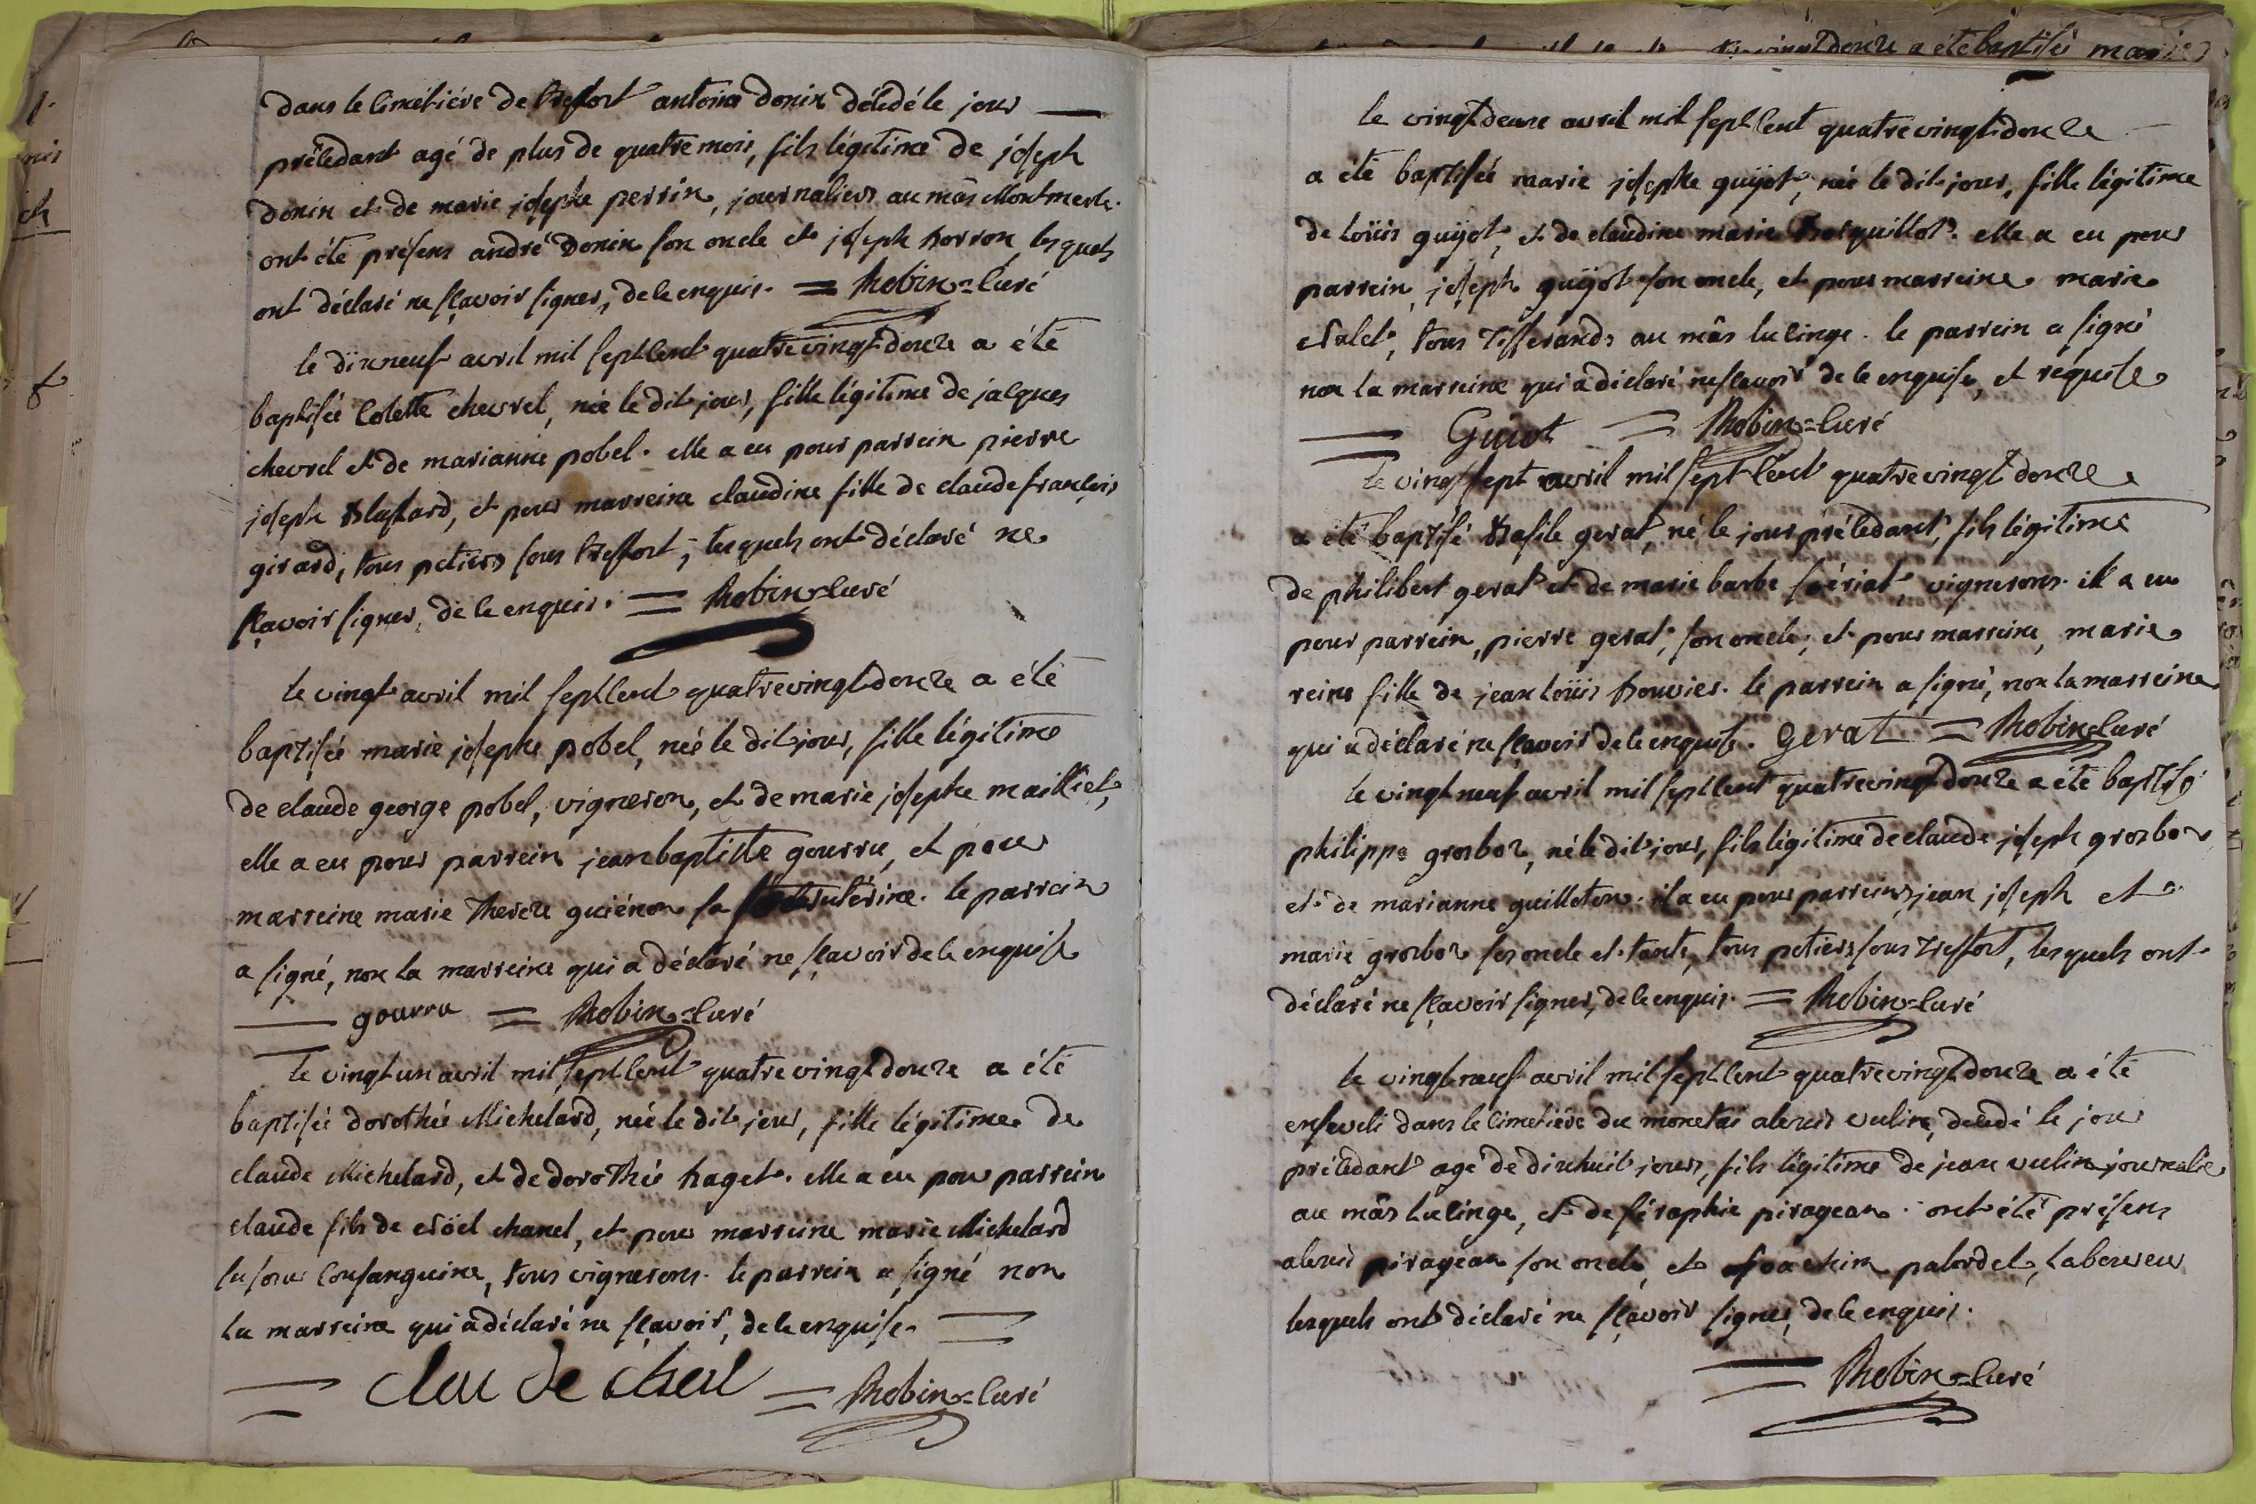 dans le cimétiére de treffort antoine donin décédé le jour
précédant agé de plus de quatre mois, fils légitime de joseph
donin et de marie josephe perrin, journaliers au mâs Montmerle.
ont été présens andré donin son oncle et joseph lesquels
ont déclaré ne sçavoir signer, de ce enquis. = Robin = curé
le dixneuf avril mil sept cent quatre vingt douze a été
baptisée Colette chevrel, née le dit jour, fille légitime de jacques
chevrel et de marianne pobel. elle a eu pour parrein pierre
joseph, et pour marreine claudine fille de claude françois
girard, tous potiers sous treffort, lesquels ont déclaré ne
sçavoir signer, de ce enquis. = Robin = curé
le vingt avril mil sept cent quatre vingt douze a été
baptisée marie josephe pobel, née le dit jour, fille légitime
de claude george pobel, vigneron, et de marie josephe mailliet,
elle a eu pour parrein jean baptiste gourru, et pour
marreine marie therese guiénon sa utérine. le parrein
a signé, non la marreine qui a déclaré ne sçavoir de ce enquise
gourru = Robin = curé
le vingt un avril mil sept cent quatre vingt douze a été
baptisée dorothée Michelard, née le dit jour, fille légitime de
claude Michelard, et de dorothée haget. elle a eu pour parrein
claude fils de chanel, et pour marreine marie Michelard
sa sœur consanguine, tous vignerons. le parrein a signé non
la marreine qui a déclaré ne sçavoir, de ce enquise. =
= = Robin = curé
vingt douze a été baptisée marie
le vingt deux avril mil sept cent quatre vingt douze
a été baptisée marie josephe guÿot, née le dit jour, fille légitime
de loüis guÿot, et de claudine marie. elle a eu pour
parrein, joseph guÿot son oncle, et pour marreine marie
, tous tisserands au mâs lucinge. le parrein a signé
non la marreine qui a déclaré ne sçavoir de ce enquise, et réquise
Guiot = Robin = curé
le vingt sept avril mil sept cent quatre vingt douze
a été baptisé Basile gerat, né le jour précédant, fils légitime
de philibert gerat et de marie barbe, vignerons. il a eu
pour parrein, pierre gerat, son oncle, et pour marreine, marie
reine fille de jean loüis bouvier. le parrein a signé, non la marreine
qui a déclaré ne sçavoir de ce enquise. gerat = Robin = curé
le vingt neuf avril mil sept cent quatre vingt douze a été baptisé
philippe grosboz, né le dit jour, fils légitime de claude joseph grosboz
et de marianne guilleton. il a eu pour parreins jean joseph et
marie grosboz ses oncle et tante, tous potiers sous treffort, lesquels ont
déclaré ne sçavoir signer, de ce enquis. = Robin = curé
le vingt neuf avril mil sept cent quatre vingt douze a été
enseveli dans le cimetiére du monetai alexis vulin, décédé le jour
précédant agé de dixhuit jours, fils légitime de jean vulin journalier
au mâs lucinge, et de séraphie pirageau. ont été présens
alexis pirageau son oncle, et joachim palordet, laboureur
lesquels ont déclaré ne sçavoir signer, de ce enquis.
= Robin = curé